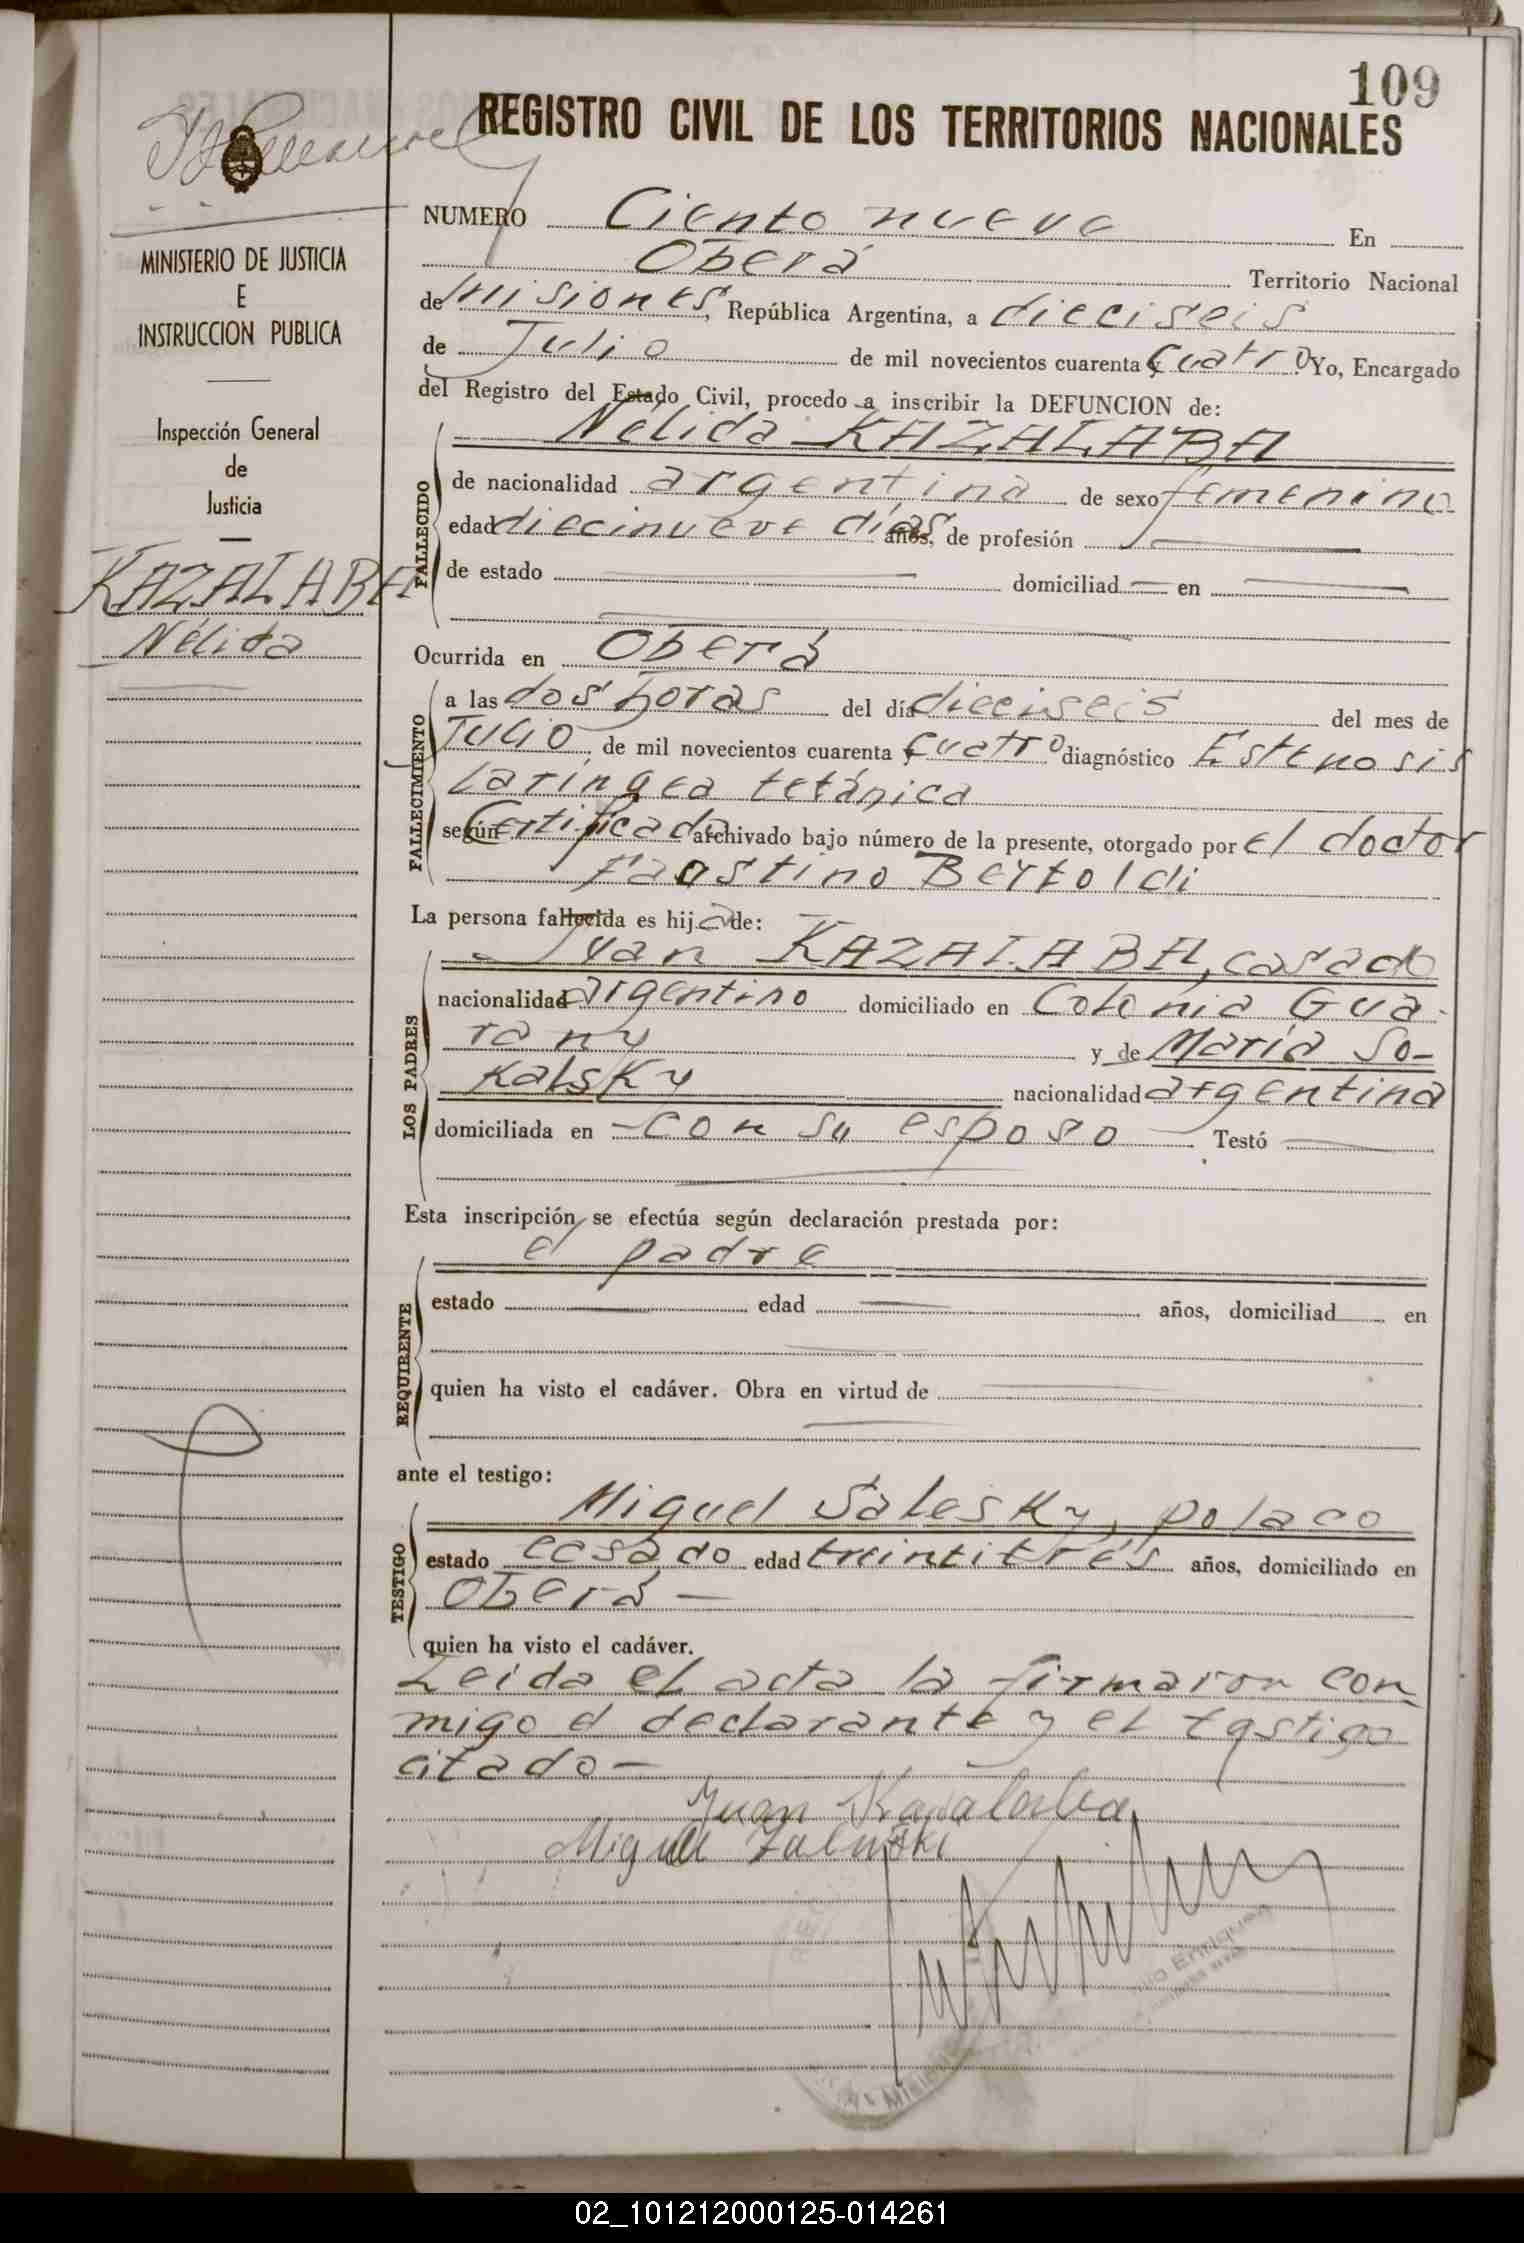 109
REGISTRO CIVIL DE LOS TERRITORIOS NACIONALES
MINISTERIO DE JUSTICIA
E
INSTRUCCION PUBLICA
Inspección General
de
Justicia
KAZALABA
Nélida
NUMERO Ciento nueve En
Oberá Territorio Nacional
de Misiones, República Argentina, a dieciseis
de Julio de mil novecientos cuarenta y cuatro. Yo, Encargado
del Registro del Estado Civil, procedo a inscribir la DEFUNCION de:
Nélida KAZALABA
FALLECIDO
de nacionalidad argentina de sexo femenino
edad diecinueve días años, de profesión
de estado domiciliad en
Ocurrida en Oberá
FALLECIMIENTO
a las dos horas del día dieciseis del mes de
Julio de mil novecientos cuarenta y cuatro diagnóstico Estenosis
laríngea tetánica
según Certificado archivado bajo número de la presente, otorgado por el doctor
Faustino Bertoldi
La persona fallecida es hija de:
LOS PADRES
Juan KAZALABA, casado
nacionalidad argentino domiciliado en Colonia Gua-
rany y de María So-
Kalsky nacionalidad argentina
domiciliada en - con su esposo Testó
Esta inscripción se efectúa según declaración prestada por:
REQUIRENTE
el padre
estado edad años, domiciliad en
quien ha visto el cadáver. Obra en virtud de
ante el testigo:
TESTIGO
Miguel Salesky, polaco
estado casado edad treintitrés años, domiciliado en
Oberá -
quien ha visto el cadáver.
Leida el acta la firmaron con
migo el declarante y el testigo
citado -
Juan Kazalaba
Miguel Zaluski
02_101212000125-014261